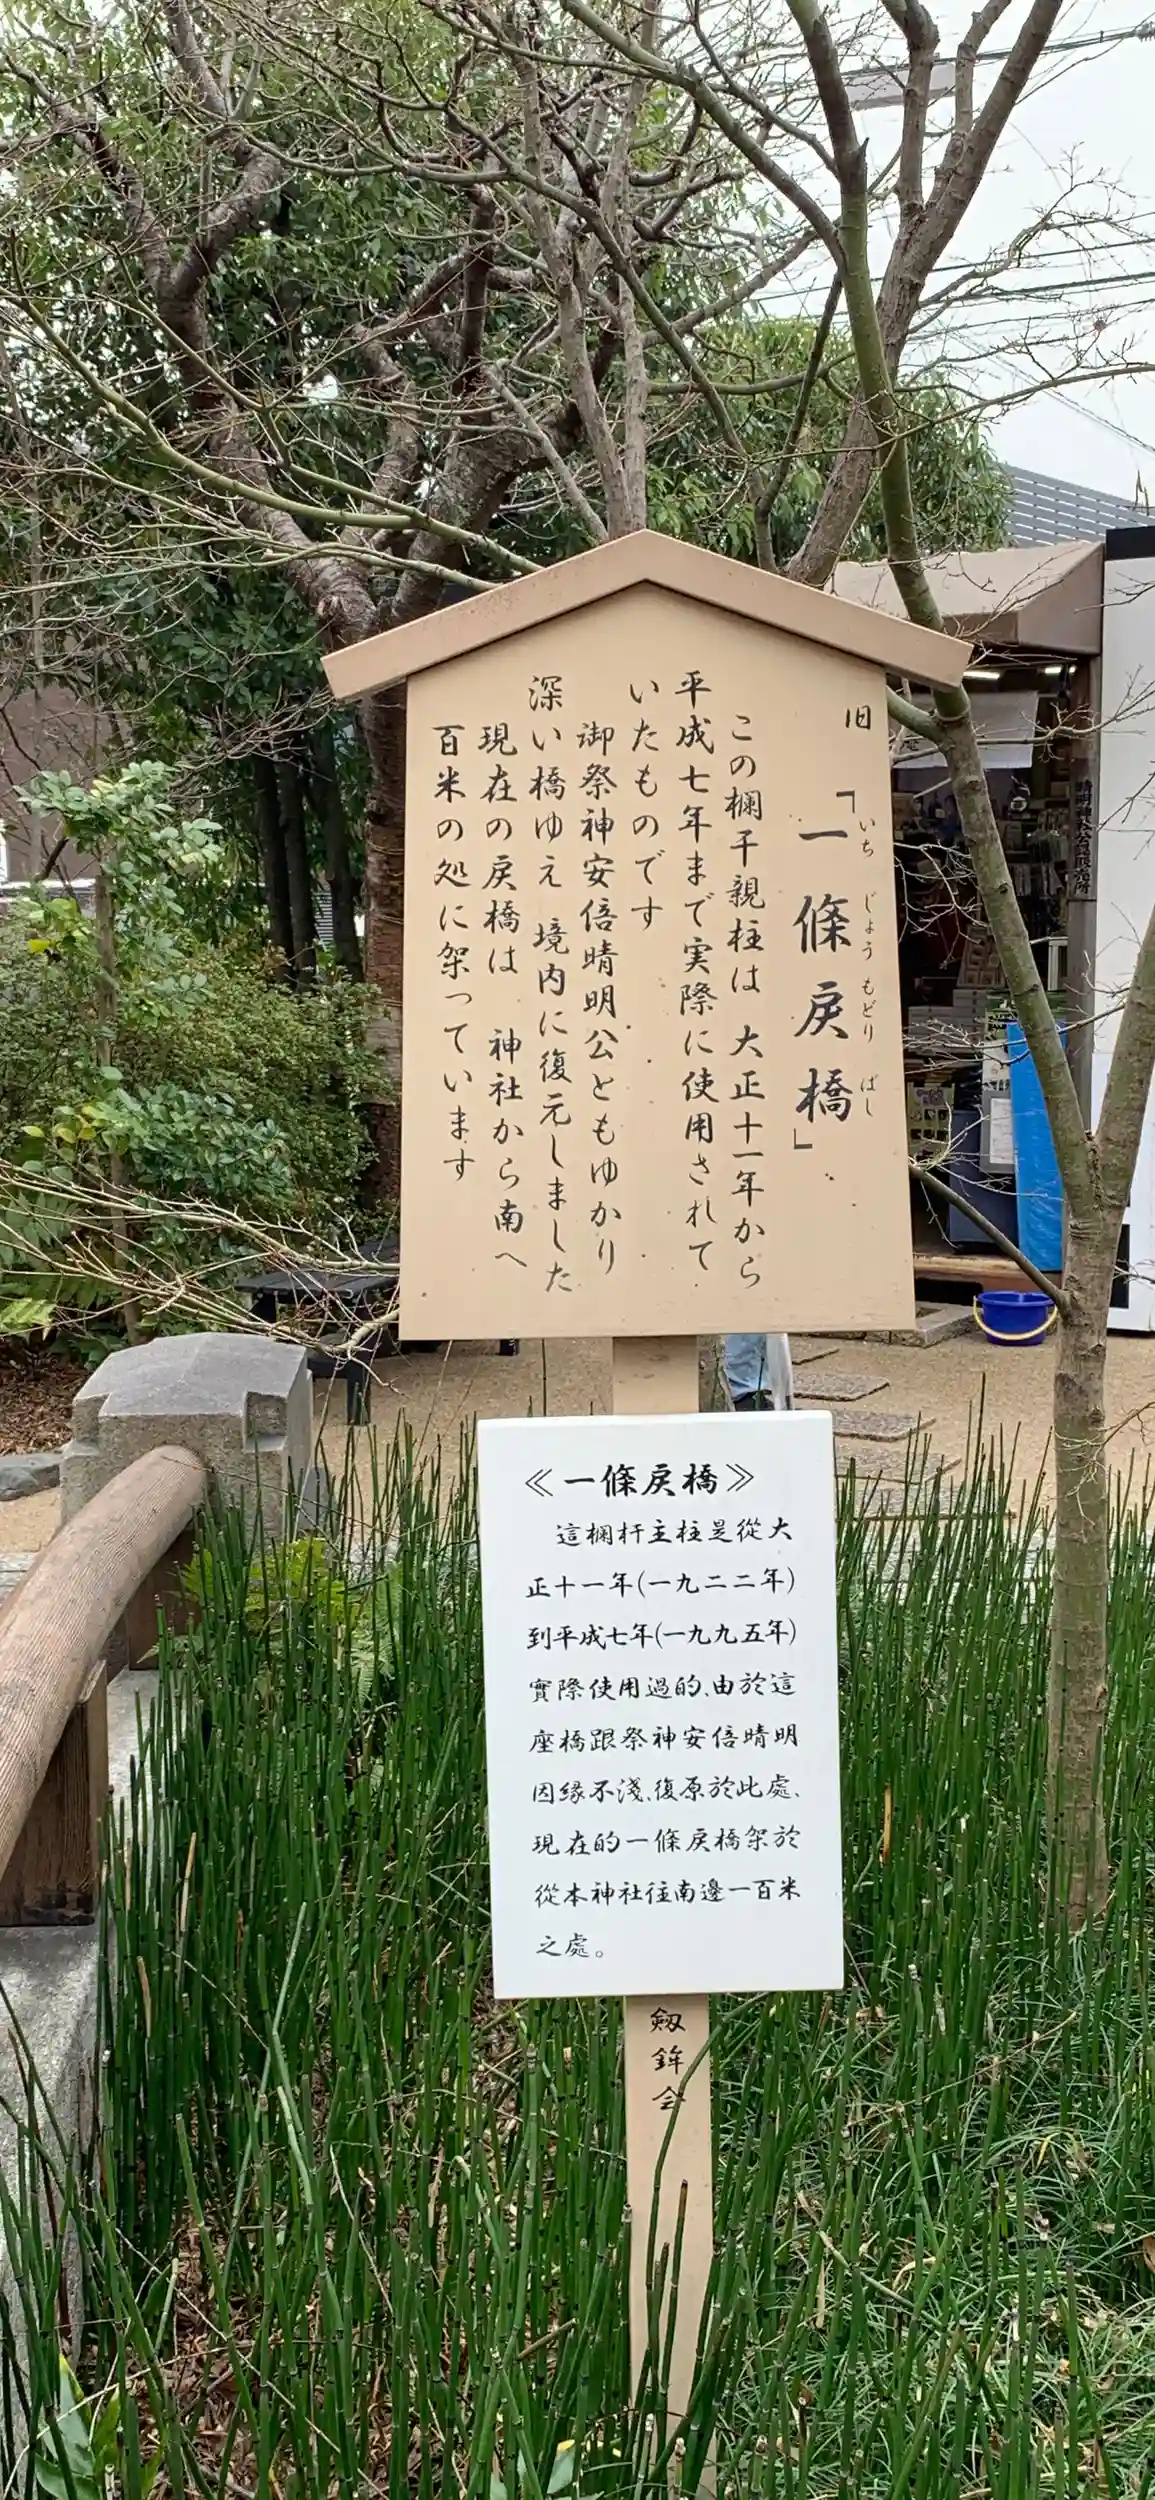 旧「一條戻橋」
いち じょう もどり ばし
この欄干親柱は 大正十一年から
平成七年まで実際に使用されて
いたものです
御祭神安倍晴明公ともゆかり
深い橋ゆえ 境内に復元しました
現在の戻橋は 神社から南へ
百米の処に架っています
≪一條戻橋≫
這欄杆主柱是從大
正十一年(一九二二年)
到平成七年(一九九五年)
實際使用過的、由於這
座橋跟祭神安倍晴明
因緣不淺、復原於此處、
現在的一條戻橋架於
從本神社往南邊一百米
之處。
剱鉾会